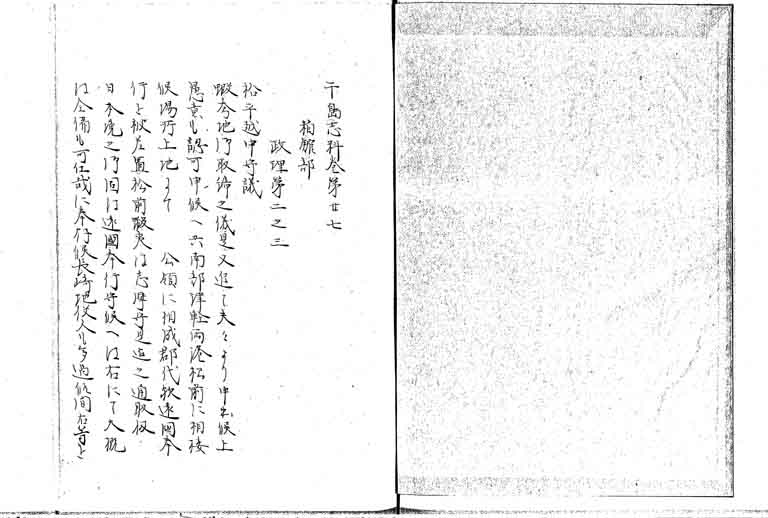 千島志料巻第廿七
箱館部
政理第二之三
松平越中守議
蝦夷地御取締之儀是又追て夫々より申出候上
愚意も認可申候へ共南部津軽両港松前に相接
候場所上地にて 公領に相成郡代欤遠国奉
行と被差置松前蝦夷は志摩守是迄之通取扱
日本境之御固は遠国奉行等候へは右にて大概
は全備も可仕哉に奉存候長崎地役人も多過候間右等と